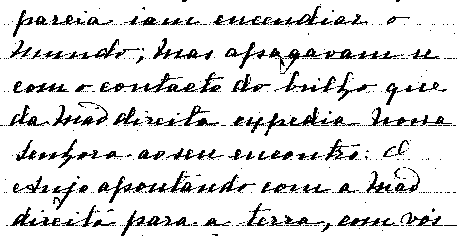 pareia iam encendiar o
mundo; mas apagavam-se
com o contacto do brilho que
da mão direita expedia Nossa
Senhora ao seu encontro: O
Anjo apontando com a mão
direita para a terra, com vós